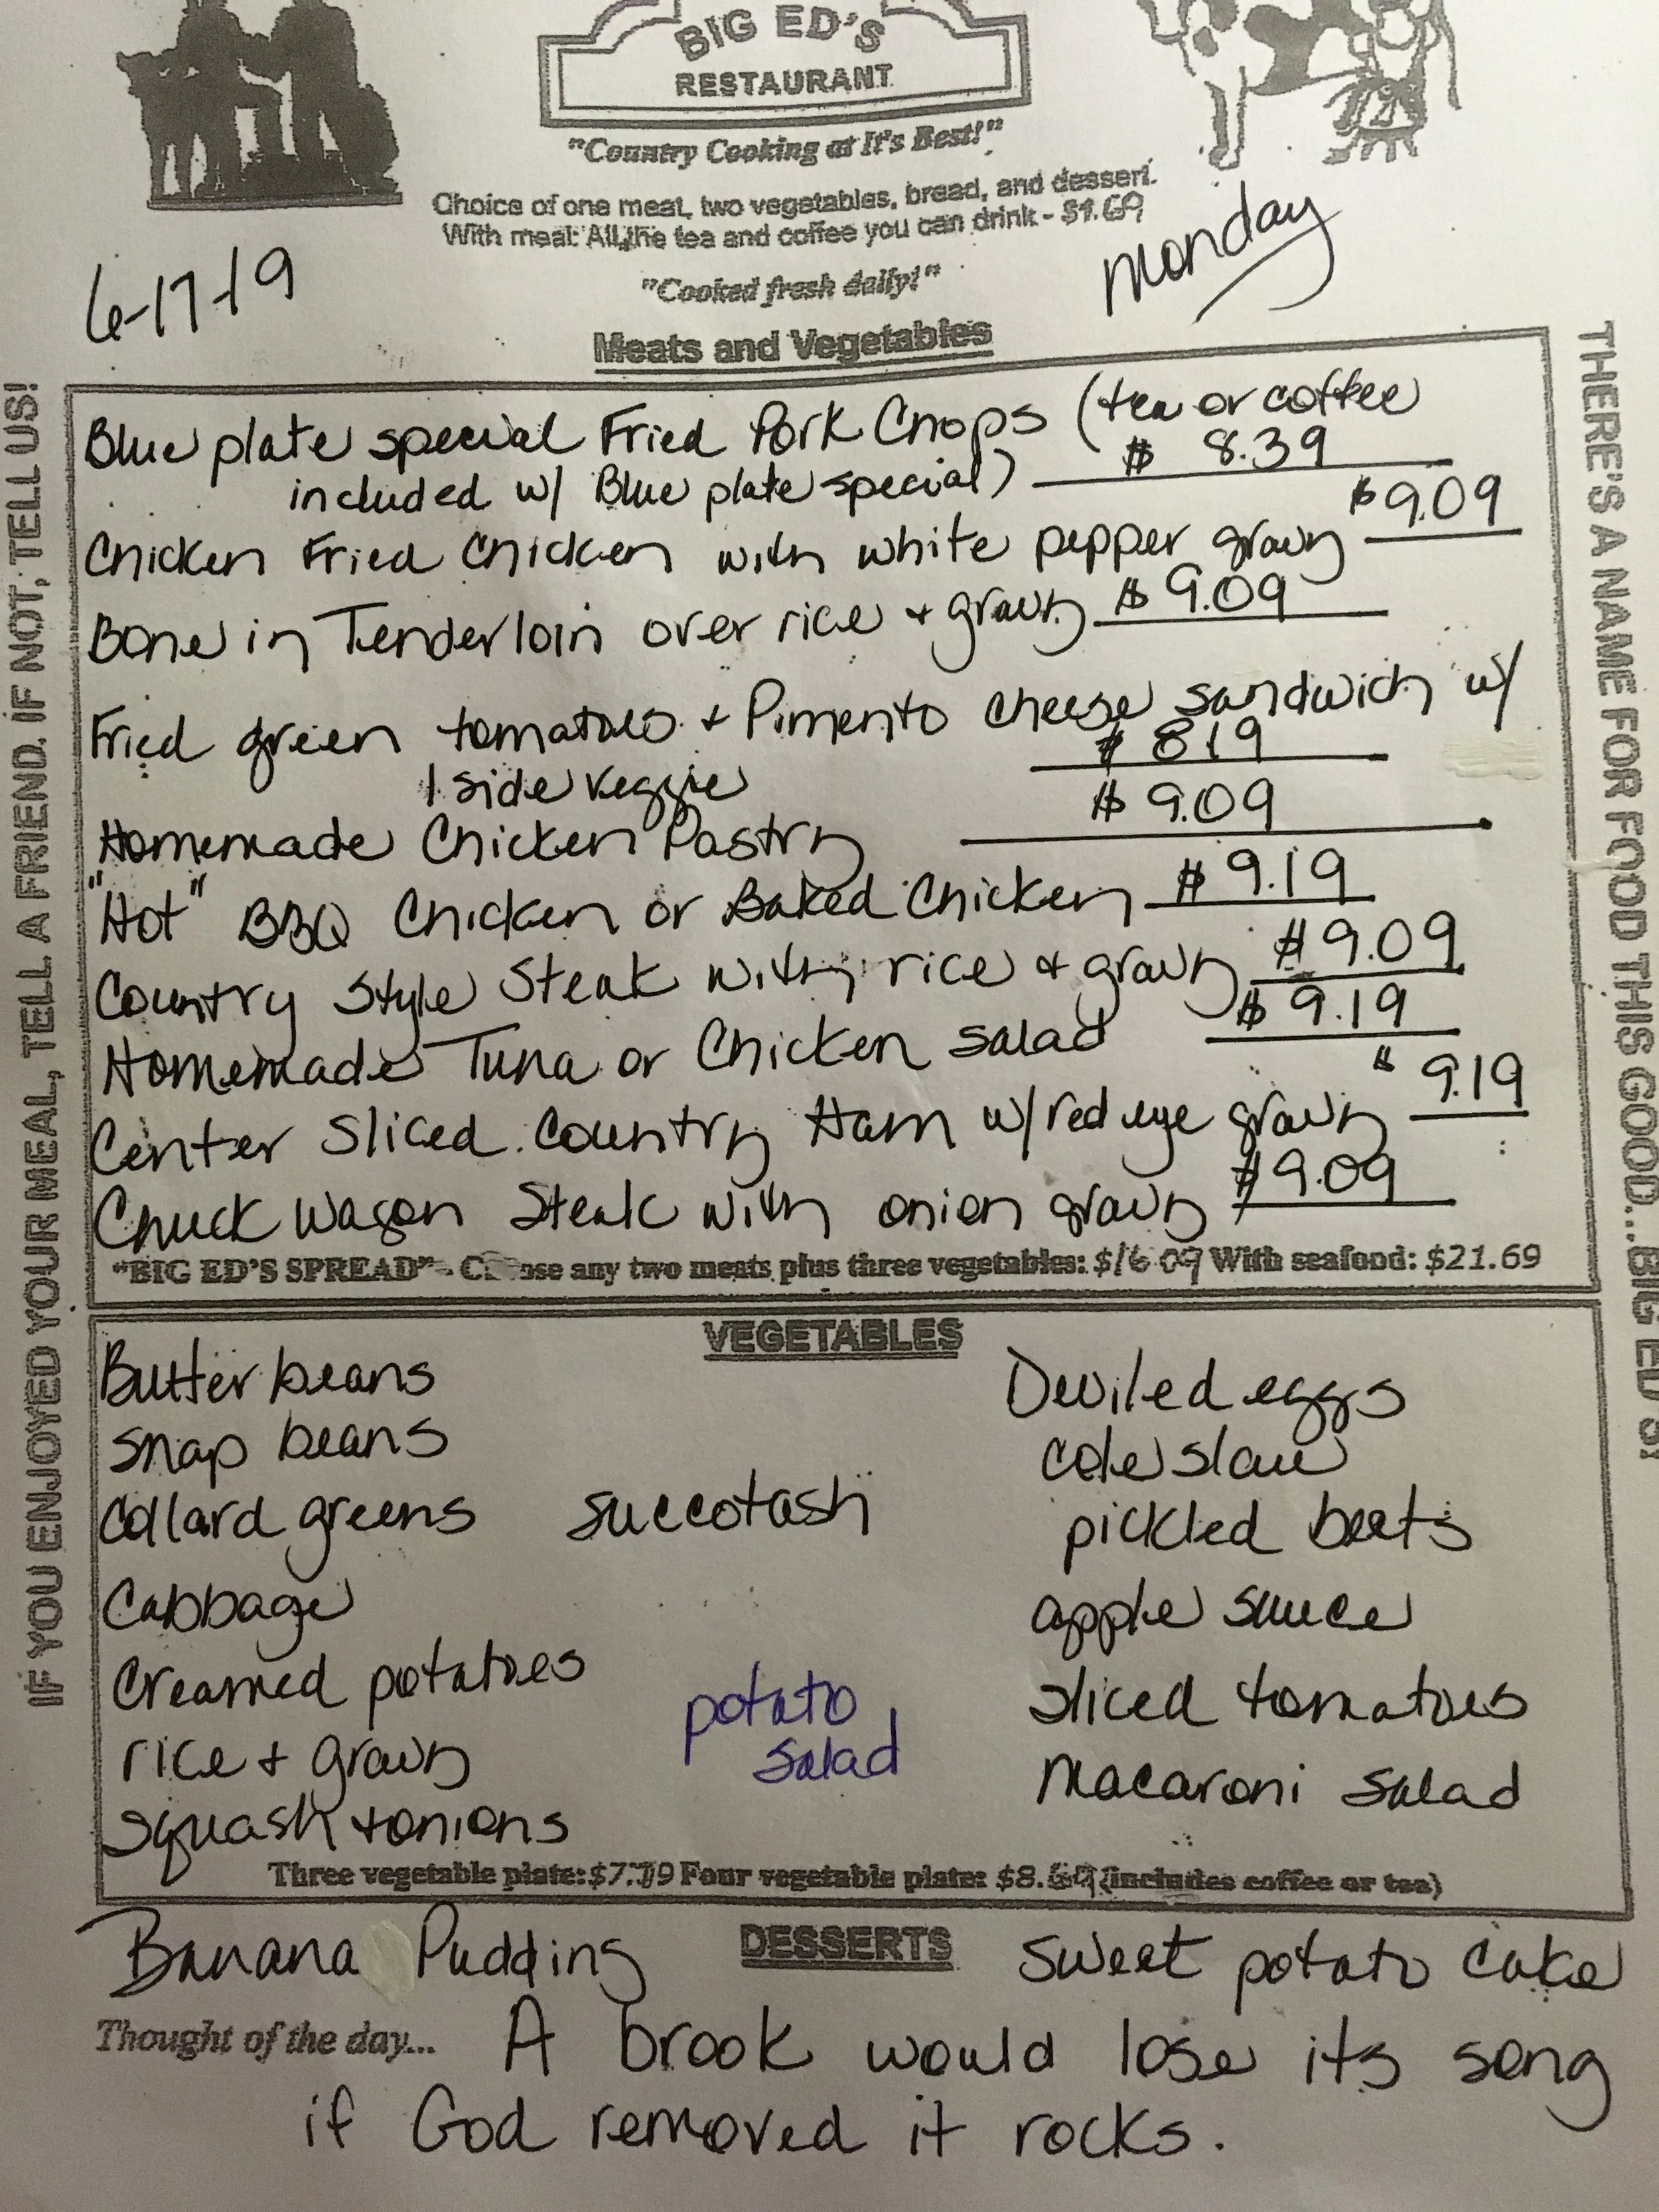 BIG ED'S
RESTAURANT
"Country Cooking at It's Best!"
Choice of one meat, two vegetables, bread, and dessert.
With meal: All the tea and coffee you can drink - $1.69
"Cooked fresh daily!"
6-17-19
Monday
Meats and Vegetables
Blue plate special Fried Pork Chops (tea or coffee
included w/ Blue plate special) $ 8.39
Chicken Fried Chicken with white pepper gravy $9.09
Bone in Tenderloin over rice + gravy $ 9.09
Fried green tomatoes + Pimento cheese sandwich w/
1 side veggie $ 819
Homemade Chicken Pastry $ 9.09
"Hot" BBQ Chicken or Baked Chicken $ 9.19
Country Style Steak with rice + gravy $9.09
Homemade Tuna or Chicken salad $ 9.19
Center Sliced Country Ham w/ red eye gravy $ 9.19
Chuck Wagon Steak with onion gravy $9.09
"BIG ED'S SPREAD" - any two meats plus three vegetables: $16 09 With seafood: $21.69
VEGETABLES
Butter beans
Snap beans
Collard greens
Cabbage
Creamed potatoes
rice + gravy
Squash + onions
succotash
potato
salad
Deviled eggs
cole slaw
pickled beets
apple sauce
sliced tomatoes
Macaroni Salad
Three vegetable plate: Four vegetable plate: (includes coffee or tea)
DESSERTS
Banana Pudding
Sweet potato cake
Thought of the day... A brook would lose its song
if God removed it rocks.
IF YOU ENJOYED YOUR MEAL, TELL A FRIEND. IF NOT, TELL US!
THERE'S A NAME FOR FOOD THIS GOOD...BIG ED'S!